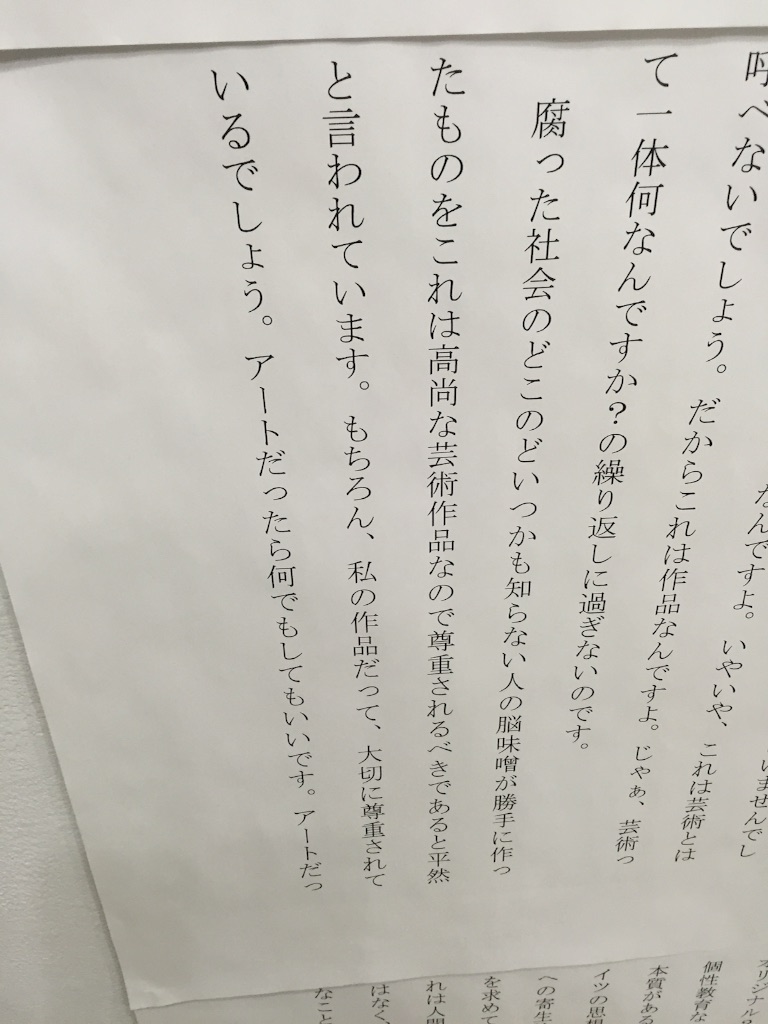 なんですよ。いやいや、これは芸術とは
呼べないでしょう。だからこれは作品なんですよ。じゃぁ、芸術っ
て一体何なんですか?の繰り返しに過ぎないのです。
腐った社会のどこのどいつかも知らない人の脳味噌が勝手に作っ
たものをこれは高尚な芸術作品なので尊重されるべきであると平然
と言われています。もちろん、私の作品だって、大切に尊重されて
いるでしょう。アートだったら何でもしてもいいです。アートだっ
オリジナル
個性教育な
本質がある
イツの思想
への寄生
を求めて
れは人間
はなく、
なこと